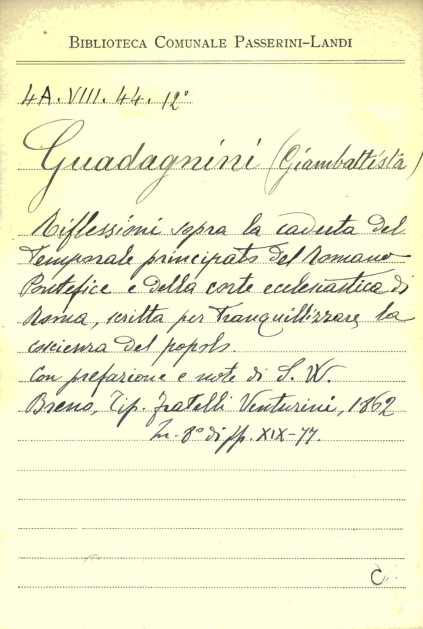 BIBLIOTECA COMUNALE PASSERINI-LANDI
4A. VIII. 44. 12°
Guadagnini (Giambattista)
Riflessioni sopra la caduta del
Temporale principato del Romano
Pontefice e della corte ecclesiastica di
Roma, scritta per tranquillizzare la
coscienza del popolo.
Con prefazione e note di S. W.
Breno, Tip. fratelli Venturini, 1862
In-8° di pp. XIX-77.
C.